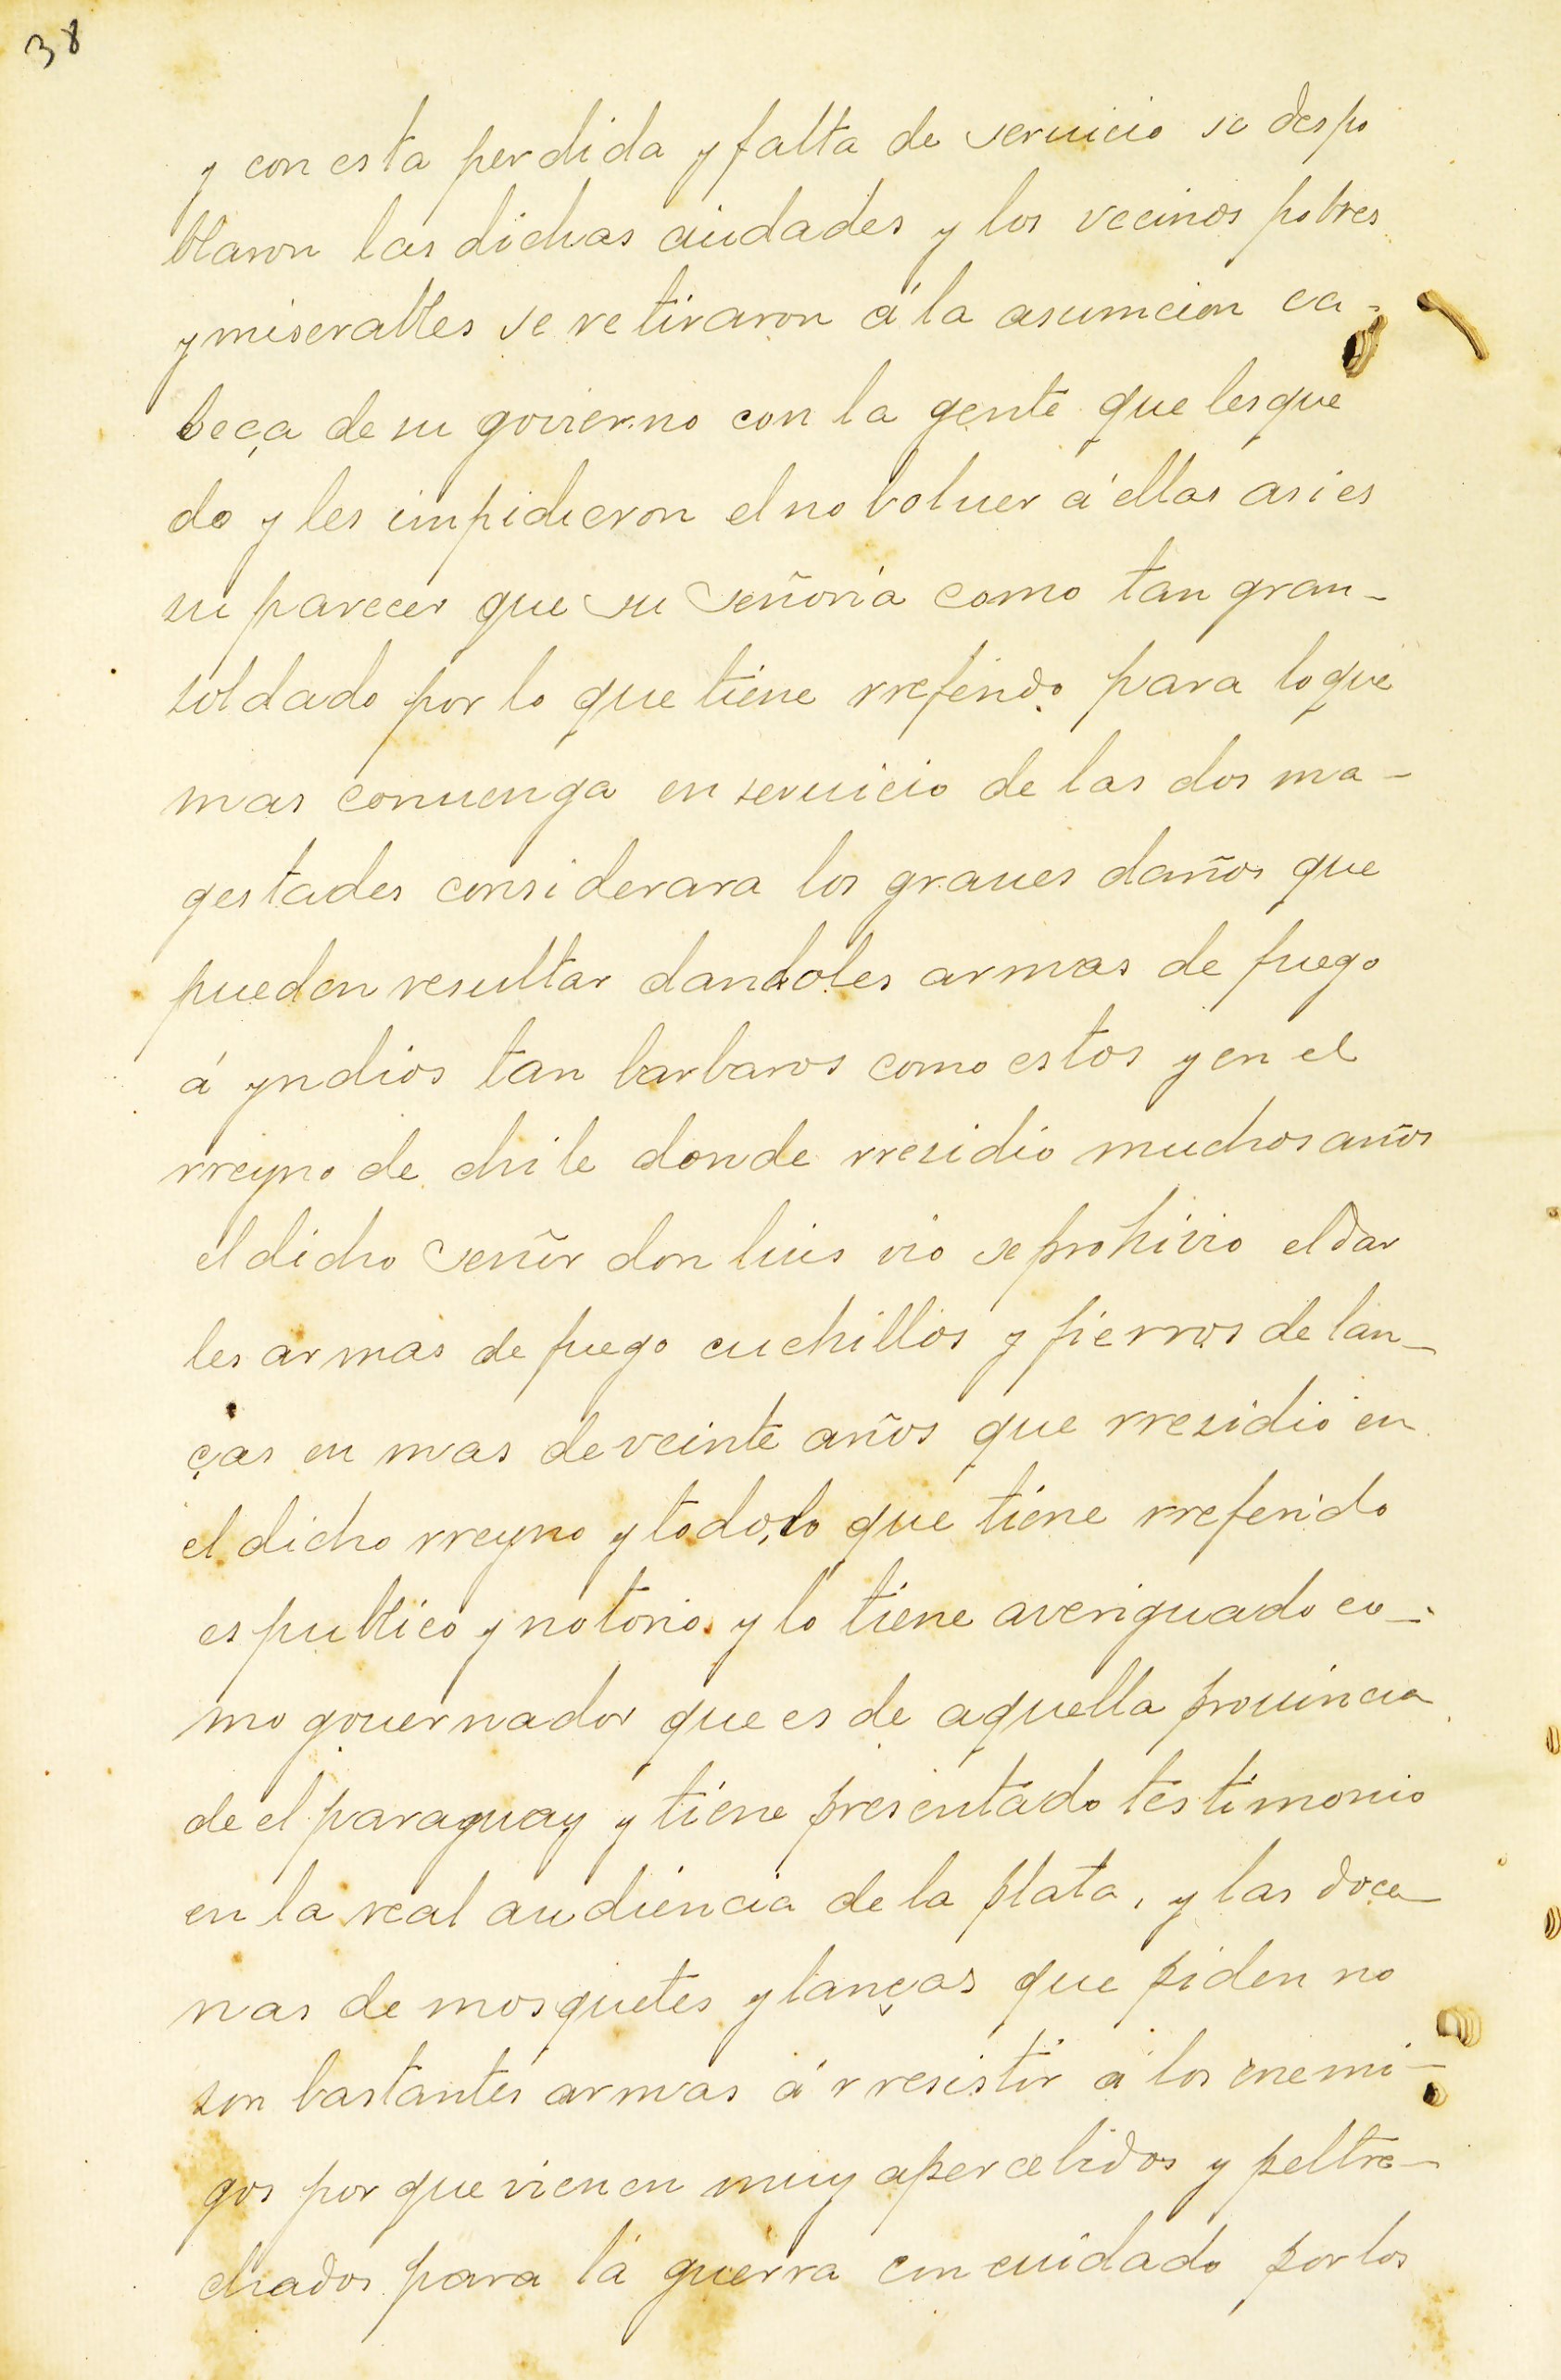 38
y con esta perdida y falta de seruicio se despo
blaron las dichas ciudades y los vecinos pobres
y miserables se retiraron á la asumcion ca-
beça de su govierno con la gente que les que
do y les impidieron el no boluer á ellas asi es
su parecer que su señoria como tan gran-
soldado por lo que tiene rreferido para lo que
mas conuenga en seruicio de las dos ma-
gestades considerara los graues daños que
pueden resultar dandoles armas de fuego
á yndios tan barbaros como estos y en el
rreyno de chile donde rresidio muchos años
el dicho señor don luis vio se prohivio el dar
les armas de fuego cuchillos y fierros de lan-
ças en mas de veinte años que rresidio en
el dicho rreyno y todo, lo que tiene rreferido
es publico y notorio y lo tiene averiguado co-
mo gouernador que es de aquella prouincia
de el paraguay y tiene presentado testimonio
en la real audiencia de la plata, y las doce-
nas de mosquetes y lanças que piden no
son bastantes armas á rresistir á los enemi-
gos por que vienen muy apercebidos y peltre-
chados para la guerra con cuidado por los